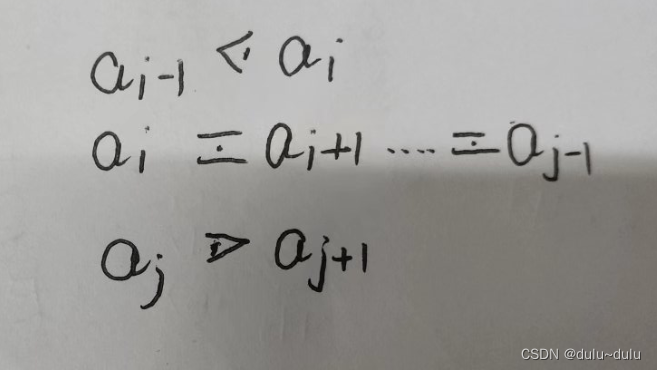 a_{i-1} < a_i
a_i = a_{i+1} .... = a_{j-1}
a_j > a_{j+1}
CSDN @dulu~dulu